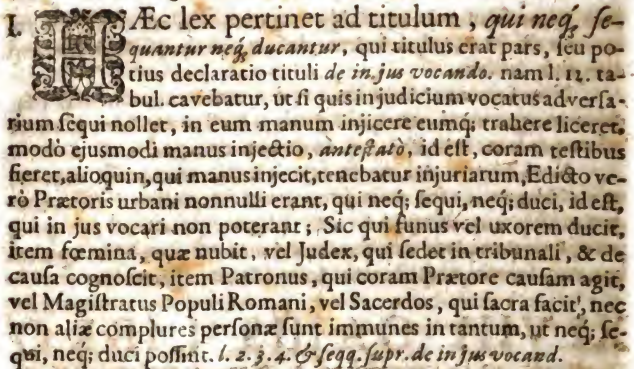 I. HÆc lex pertinet ad titulum, qui neq; se-
quantur neq; ducantur, qui titulus erat pars, seu po-
tius declaratio tituli de in jus vocando. nam l. 12. ta-
bul. cavebatur, ut si quis in judicium vocatus adversa-
rium sequi nollet, in eum manum injicere eumq; trahere liceret,
modò ejusmodi manus injectio, antestatò, id est, coram testibus
fieret, alioquin, qui manus injecit, tenebatur injuriarum, Edicto ve-
rò Prætoris urbani nonnulli erant, qui neq; sequi, neq; duci, id est,
qui in jus vocari non poterant; Sic qui funus vel uxorem ducit,
item fœmina, quæ nubit, vel Judex, qui sedet in tribunali, & de
causa cognoscit, item Patronus, qui coram Prætore causam agit,
vel Magistratus Populi Romani, vel Sacerdos, qui sacra facit, nec
non aliæ complures personæ sunt immunes in tantum, ut neq; se-
qui, neq; duci possint. l. 2. 3. 4. & seqq. supr. de in jus vocand.